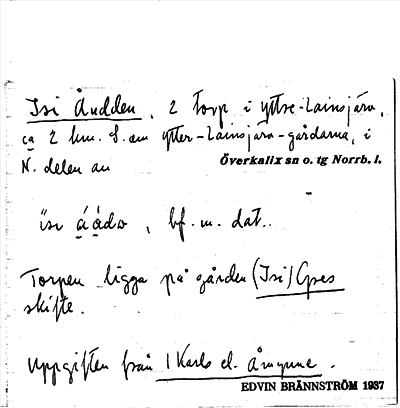 Isi Åudden, 2 torp i yttre-Lainsjärv,
ca 2 km. S. om ytter-Lainsjärv-gårdarna, i
N. delen av Överkalix sn o. tg Norrb. l.
bf. m. dat..
Torpen ligga på gården (Isi)
skifte.
Uppgiften från
EDVIN BRÄNNSTRÖM 1937